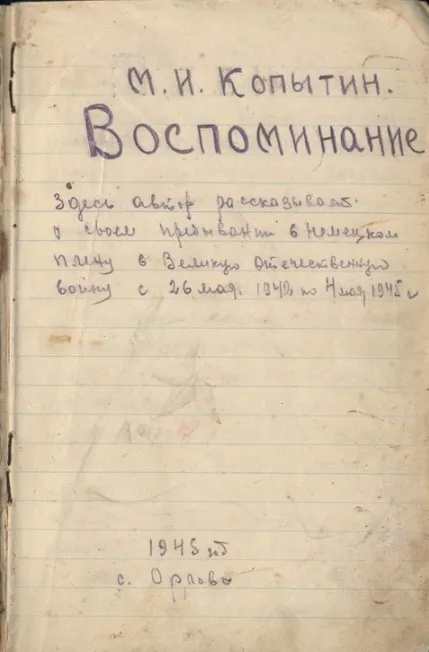 М. И. Копытин.
Воспоминание
Здесь автор рассказывает
о своем пребывании в немецком
плену в Великую отечественную
войну с 26 мая. 1942 по 4 мая 1945 г
1945
с. Орлово